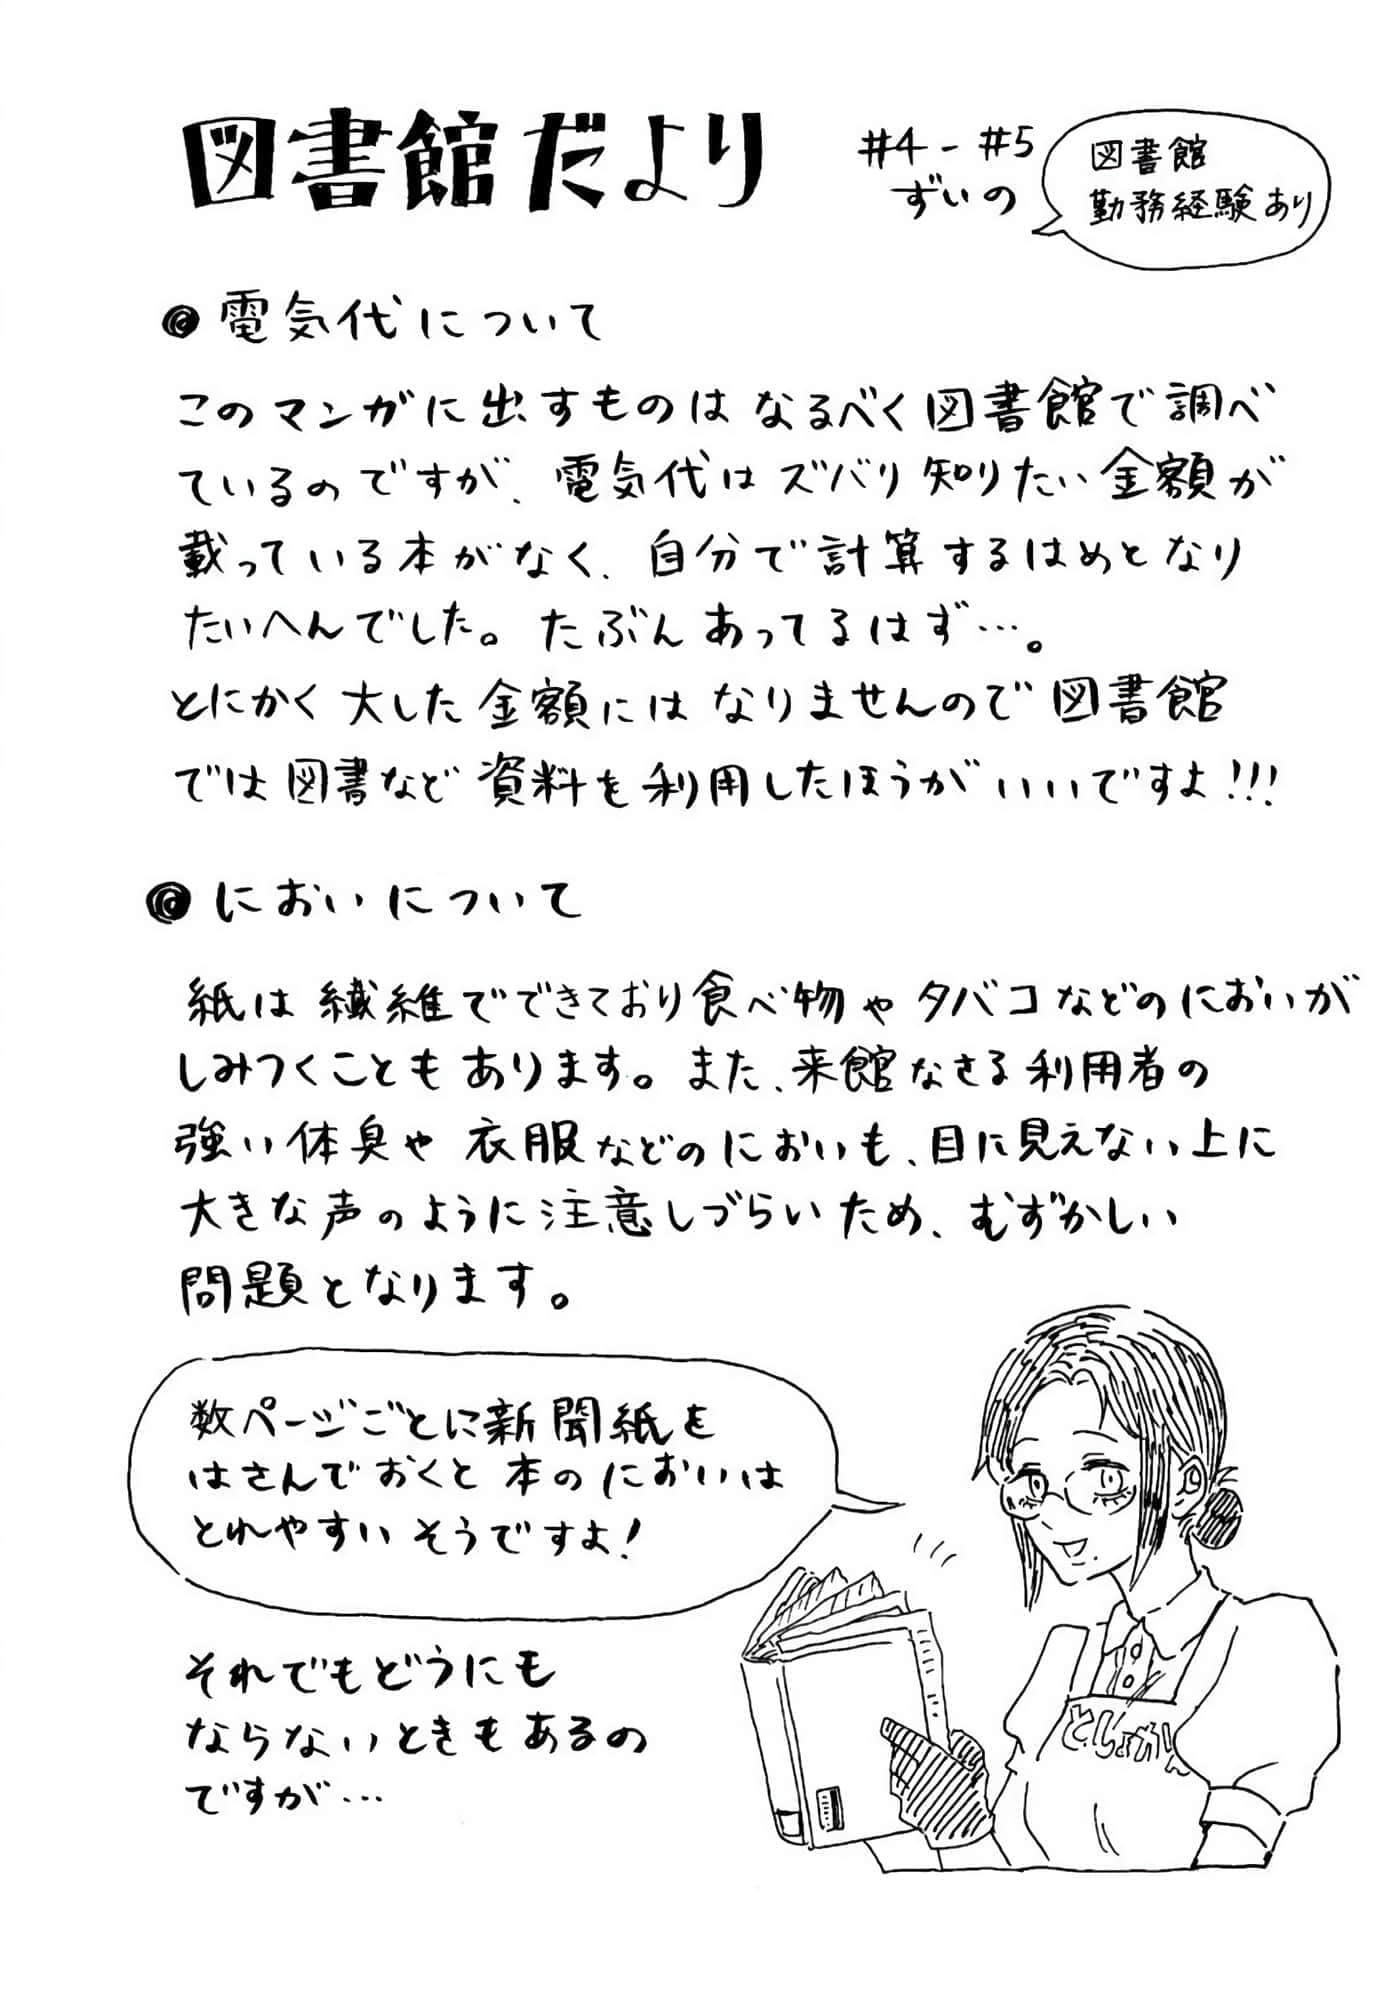 図書館だより
#4-#5
ずいの
図書館
勤務経験あり
電気代について
このマンガに出すものはなるべく図書館で調べ
ているのですが、電気代はズバリ知りたい金額が
載っている本がなく、自分で計算するはめとなり
たいへんでした。たぶんあってるはず…。
とにかく大した金額にはなりませんので図書館
では図書など資料を利用したほうがいいですよ!!!
においについて
紙は繊維でできており食べ物やタバコなどのにおいが
しみつくこともあります。また、来館なさる利用者の
強い体臭や衣服などのにおいも、目に見えない上に
大きな声のように注意しづらいため、むずかしい
問題となります。
数ページごとに新聞紙を
はさんでおくと本のにおいは
とれやすいそうですよ!
それでもどうにも
ならないときもあるの
ですが…
としょかん